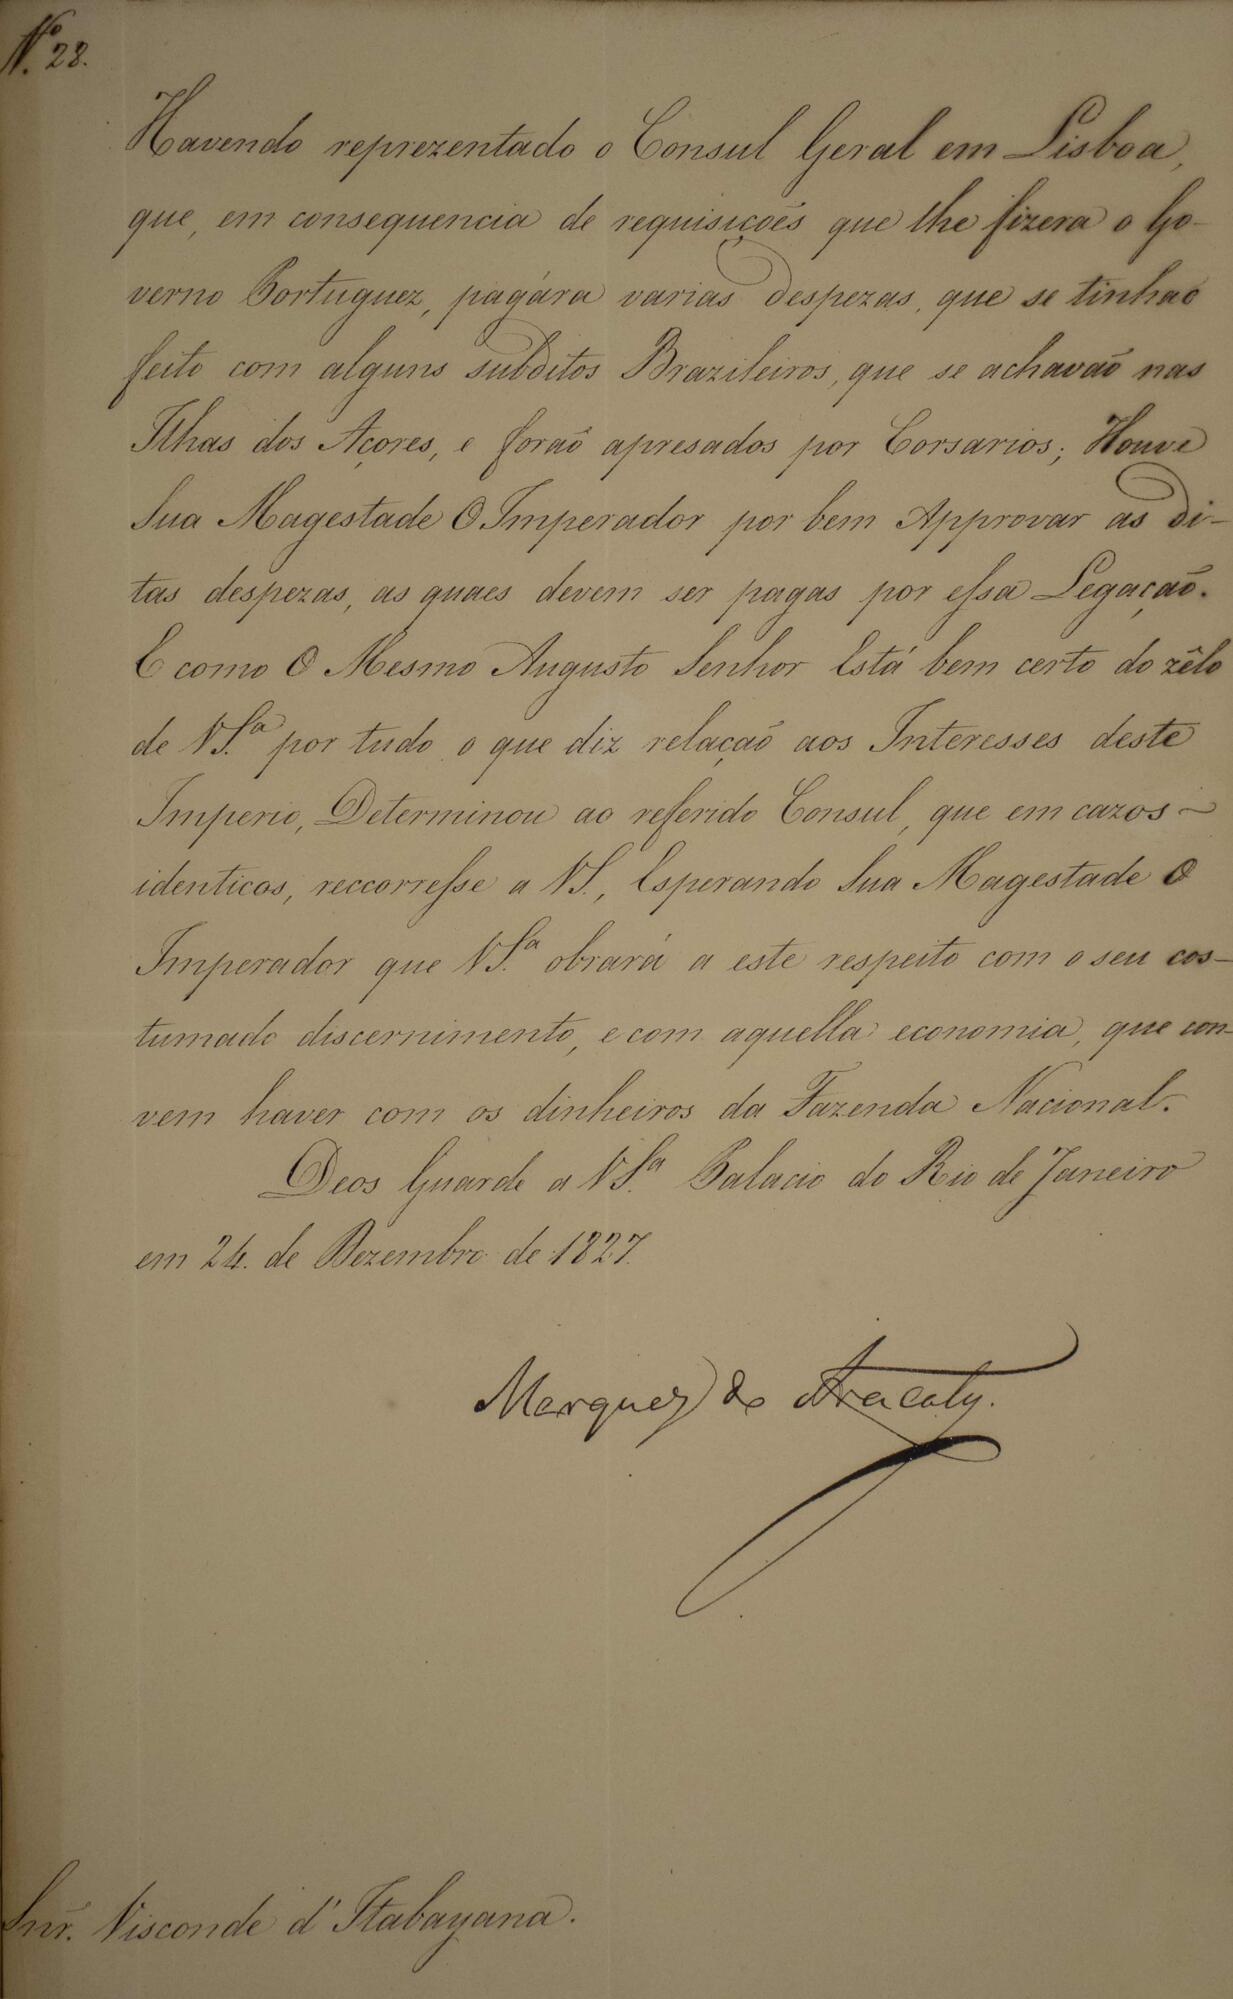 Nº 28.
Havendo reprezentado o Consul Geral em Lisboa,
que, em consequencia de requisiçoẽs que lhe fizera o Go-
verno Portuguez, pagára varias despezas, que se tinhaõ
feito com alguns subditos Brazileiros, que se achavaõ nas
Ilhas dos Açores, e foraõ apresados por Corsarios; Houve
Sua Magestade O Imperador por bem Approvar as di-
tas despezas, as quaes devem ser pagas por essa Legaçaõ.
E como O Mesmo Augusto Senhor Está bem certo do zêlo
de VS.ª por tudo o que diz relaçaõ aos Interesses deste
Imperio, Determinou ao referido Consul, que em cazos
identicos, reccorresse a VS., Esperando Sua Magestade O
Imperador que VS.ª obrará a este respeito com o seu cos-
tumado discernimento, e com aquella economia, que con-
vem haver com os dinheiros da Fazenda Nacional.
Deos Guarde a VS.ª Palacio do Rio de Janeiro
em 24. de Dezembro de 1827.
Marquez de Aracaty.
Snr. Visconde d'Itabayana.